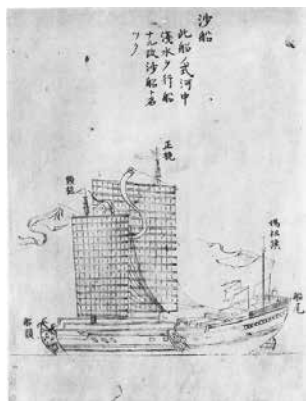 沙船
此船ノ式河中
淺水ヲ行船
ナル故沙船ト名
ツク
正桅
頭桅
媽祖旗
船尾
船頭